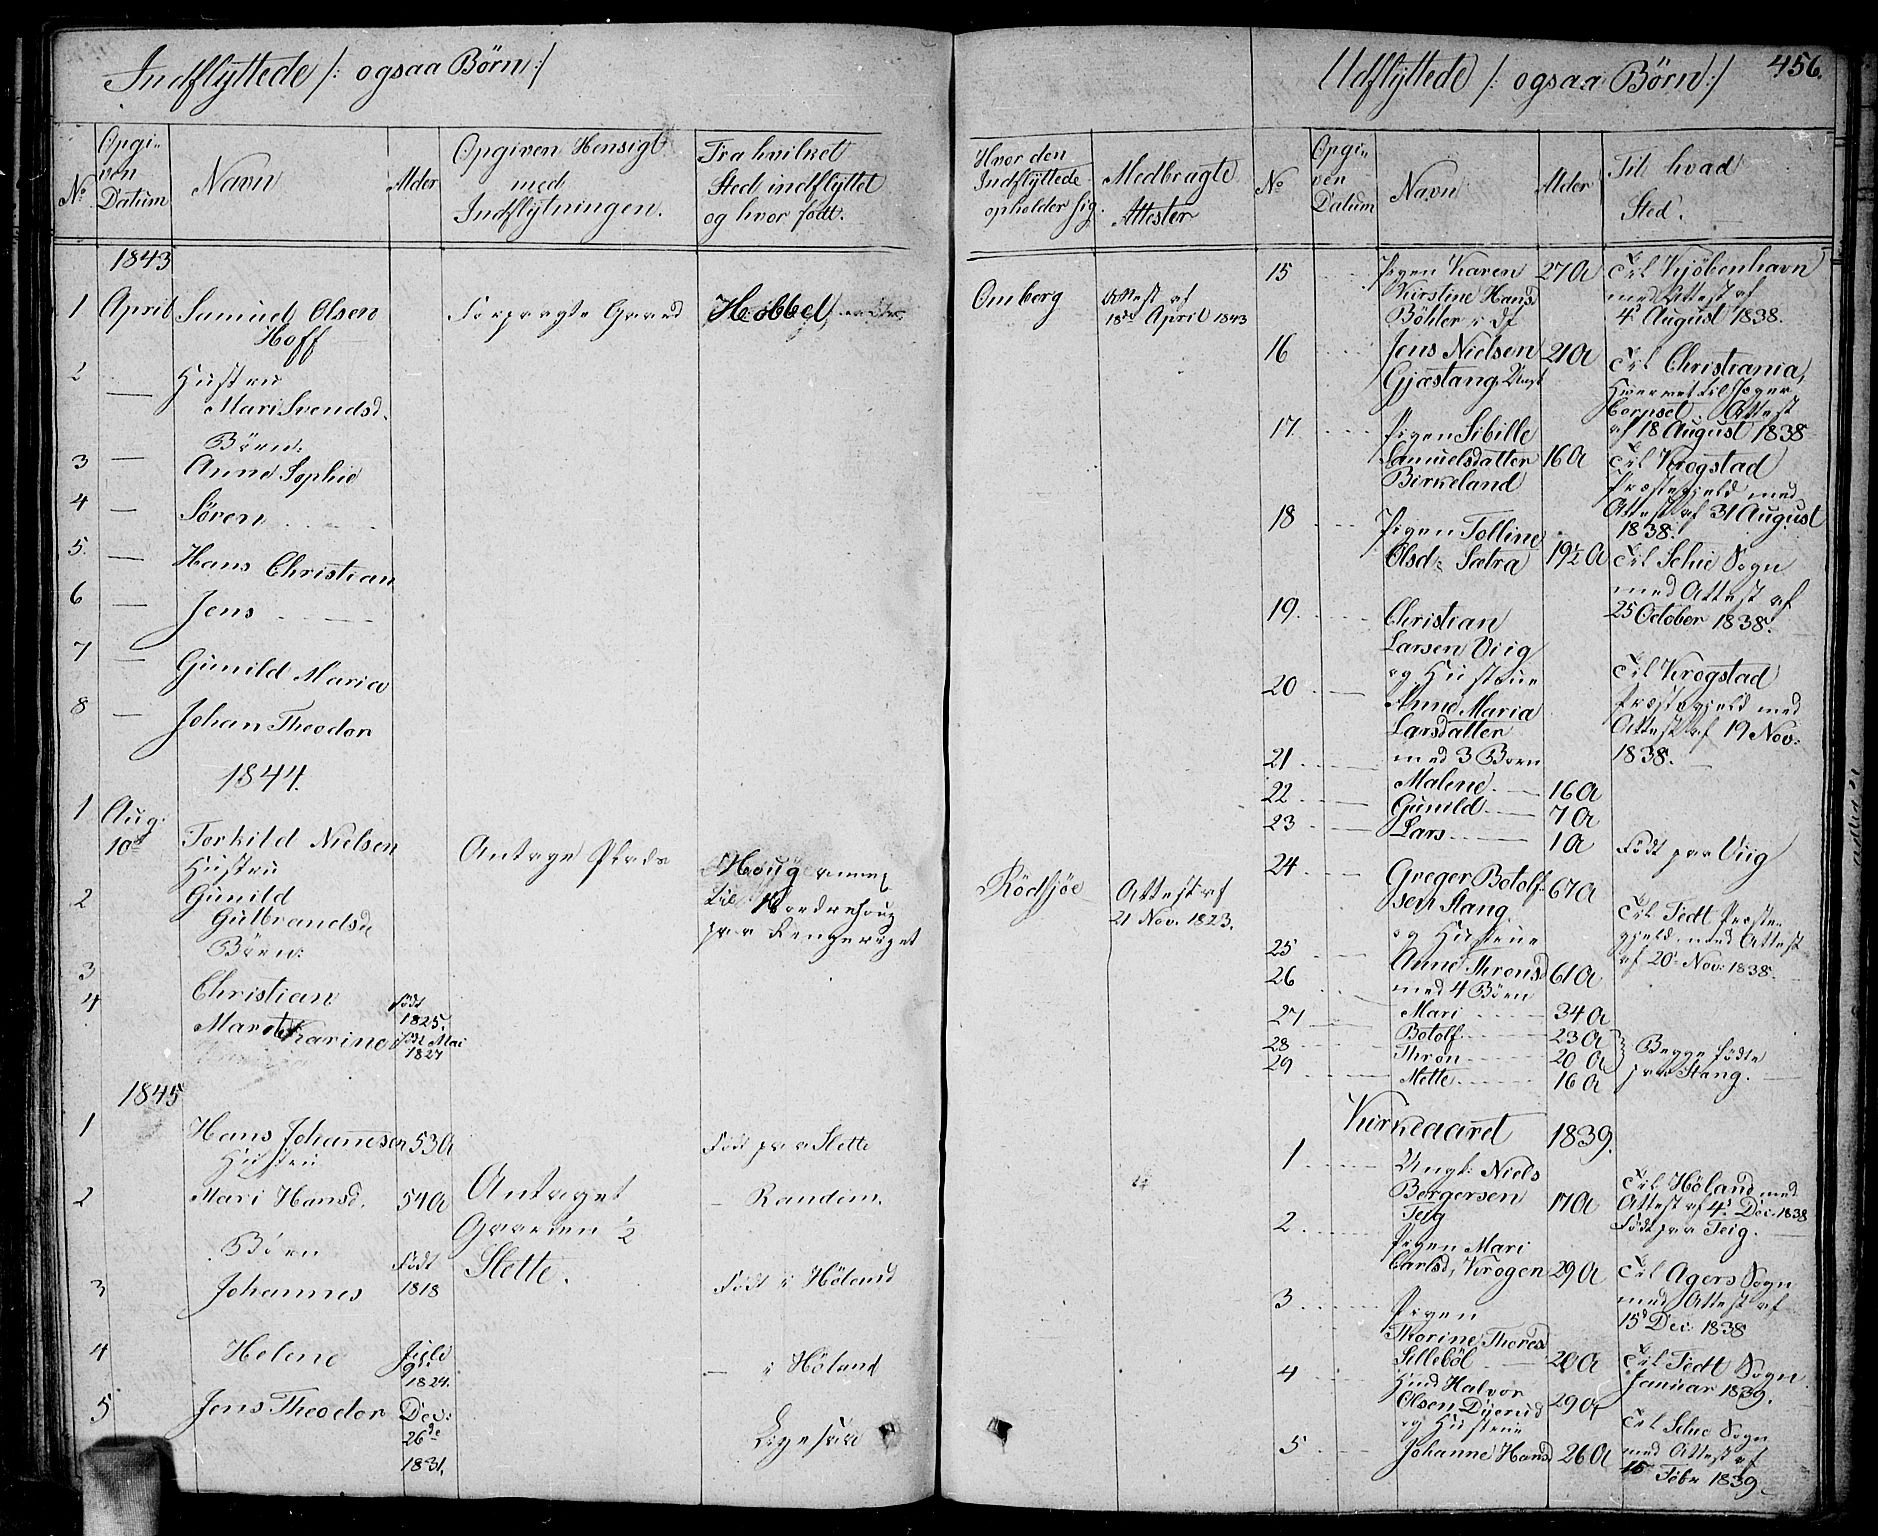 Indflyttede /: ogsaa Børn :/
No
Opgi-
ven
Datum
Navn
Alder
Opgiven Hensigt
med
Indflytningen.
Fra hvilket
Sted indflyttet
og hvor født.
1843
1 April Samuel Olsen
Hoff
Forpagte Gaard
Høbbel
2 — Hustru
Mari Svendsd.
Börn:
3 — Anne Sophie
4 — Sören
5. — Hans Christian
6 — Jens
7 — Gunild Maria
8 — Johan Theodor
1844.
1 Aug: 10de Torkild Nielsen
Antage Plads
Houg
Hustru
2 Gunild
Gulbrandsd
Börn:
paa Ringeriget
3 Christian født 1825.
4 Marthe Karine født Mai 1827
1845
1 Hans Johannesen 53 A
Født paa Slette
Hustru
2 Mari Hansd. 54 A
Antaget
Gaarden 1/2
Slette.
— Randem.
Børn
3 Johannes Født 1818
Født i Höland
4 Helene Juli 9de 1824.
— i Höland
5 Jens Theodor Dec: 26de 1831.
Ligesaa
Hvor den
Indflyttede
opholder sig.
Medbragte
Attester
Omberg
Attest af
18de April 1843
Rödsjöe
Attest af
21 Nov. 1823.
Udflyttede /: ogsaa Børn :/
456.
No
Opgi-
ven
Datum
Navn
Alder
Til hvad
Sted.
15 Pigen Karen 27 A
Kirstine Hansd
Böhler
Til Kjöbenhavn
med Attest af
4. August 1838.
16 Jens Nielsen 21 A
Gjæstang, Ungk
Til Christiania,
hvervet til Jæger
Corpset. Attest
af 18 August 1838
17. Pigen Sibille
Samuelsdatter 16 A
Birkeland
Til Krogstad
Præstegjeld med
Attest af 31 August
1838.
18 Pigen Tolline
Olsd: Sætra 19½ A
Til Schie Sogn
med Attest af
25 October 1838.
19. Christian
Larsen Viig
og Hustrue
20 Anne Maria
Larsdatter
med 3 Børn
Til Krogstad
Præstegjeld med
Attest af 19 Nov:
1838.
21 Malene 16 A
22 Gunild 7 A
23 Lars 1 A
Født paa Viig
24 Greger Botolf- 67 A
sen Stang.
og Hustrue
25 Anne Thronsd 61 A
med 4 Børn
Til Fedt Præste-
gjeld med Attest
af 20de Nov: 1838.
26 Mari 34 A
27 Botolf 23 A
28 Thron 20 A
29 Mette 16 A
Begge fødte
paa Stang.
Kirkeaaret 1839.
1 Ungk: Niels
Borgersen 17 A
Teig
Til Høland med
Attest af 4de Dec: 1838
Født paa Teig.
2 Pigen Mari
Carlsd, Krogen 29 A
Til Agers Sogn
med Attest af
15de Dec: 1838
3 Pigen
Thorine Thoresd
Silleböl 20 A
Til Fedt Sogn
Januar 1839.
4 Halvor
Olsen Dyerud 29 A
og Hustrue
5 Johanne Hansd 26 A
Til Schie Sogn
med Attest af
15 Febr 1839